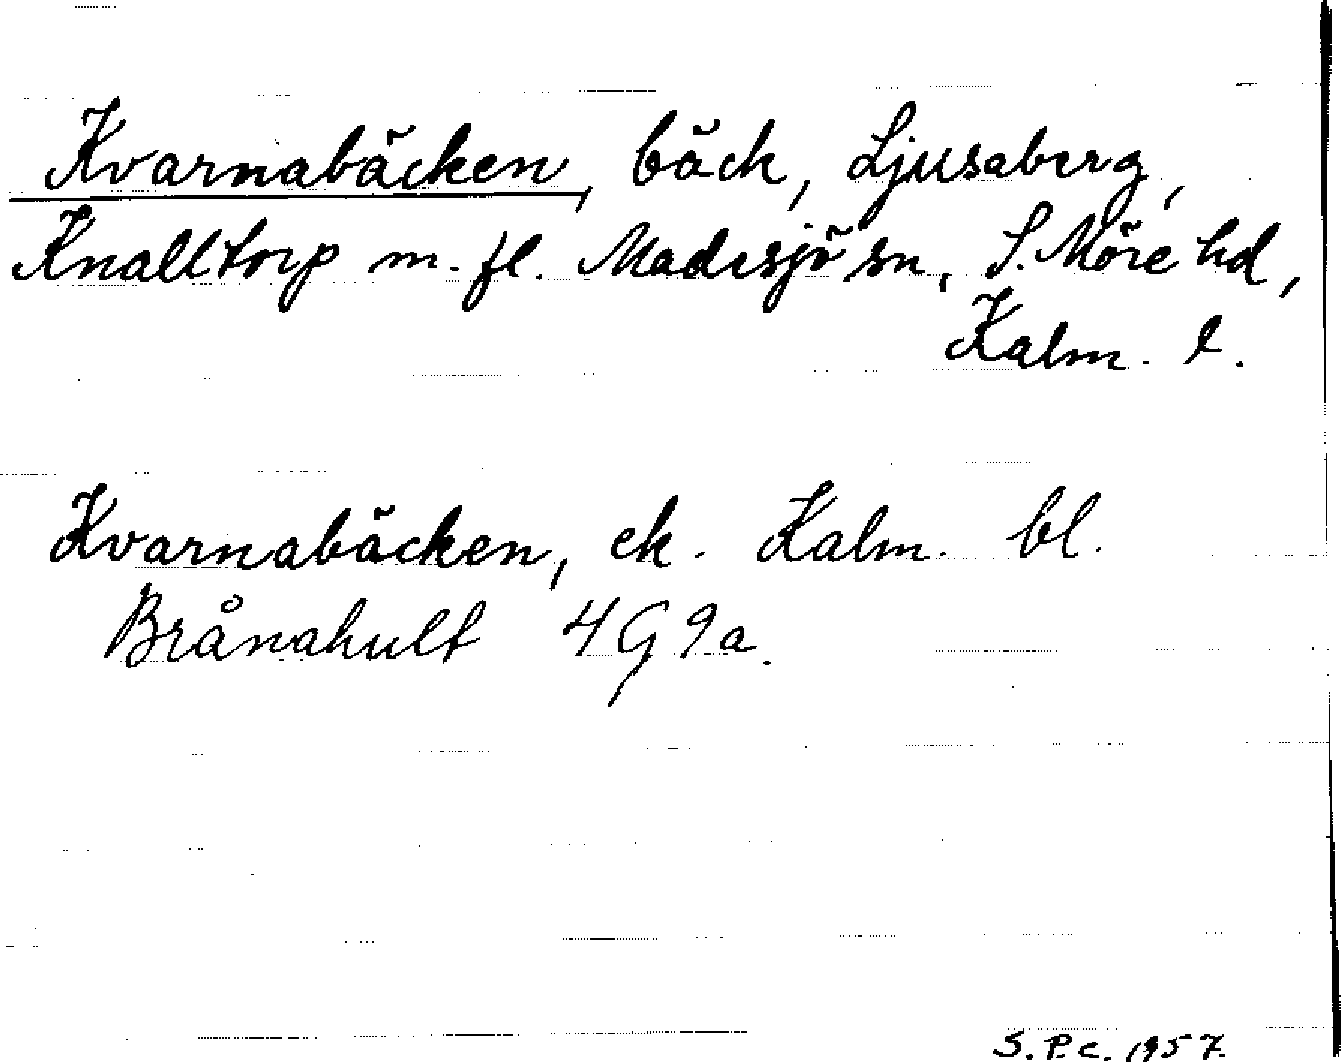 Kvarnabäcken, bäck, Ljusaberg,
Knalltorp m. fl. Madesjö sn, S. Möre hd,
Kalm. l.
Kvarnabäcken, ek. Kalm. bl.
Brånahult 4G9a.
S.P.C. 1957.